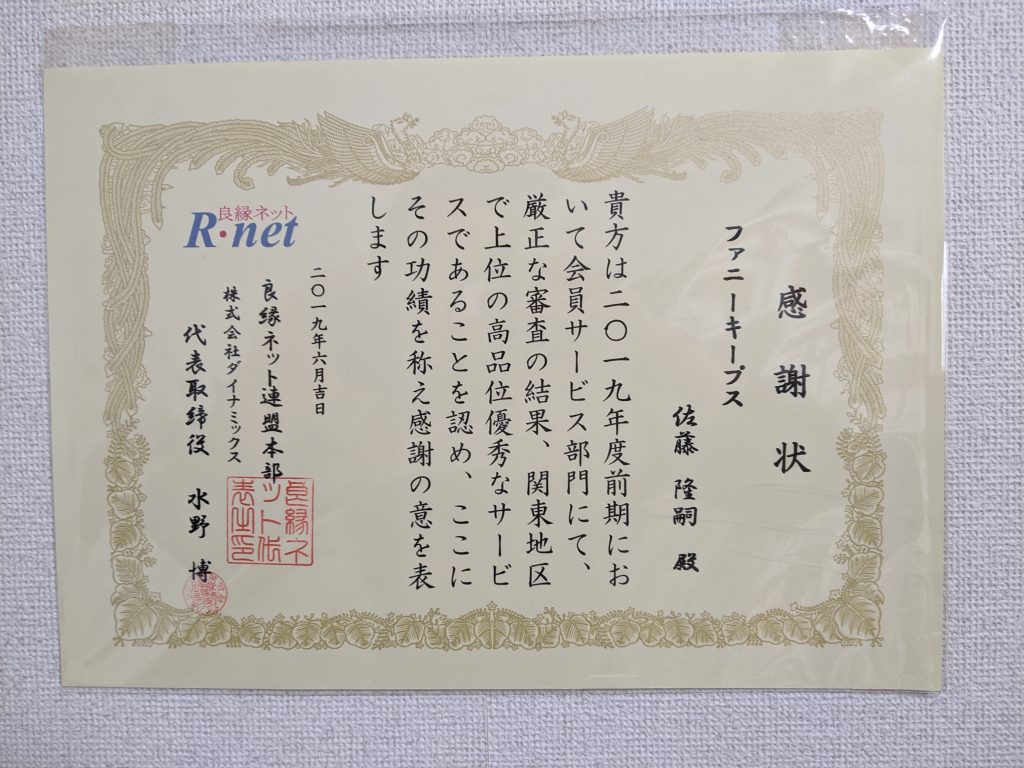 感謝状
ファニーキープス
佐藤 隆嗣 殿
貴方は二〇一九年度前期にお
いて会員サービス部門にて、
厳正な審査の結果、関東地区
で上位の高品位優秀なサービ
スであることを認め、ここに
その功績を称え感謝の意を表
します
二〇一九年六月吉日
良縁ネット連盟本部
株式会社ダイナミックス
代表取締役 水野 博
良縁ネット
R・net
良縁ネ
ット代
表者印